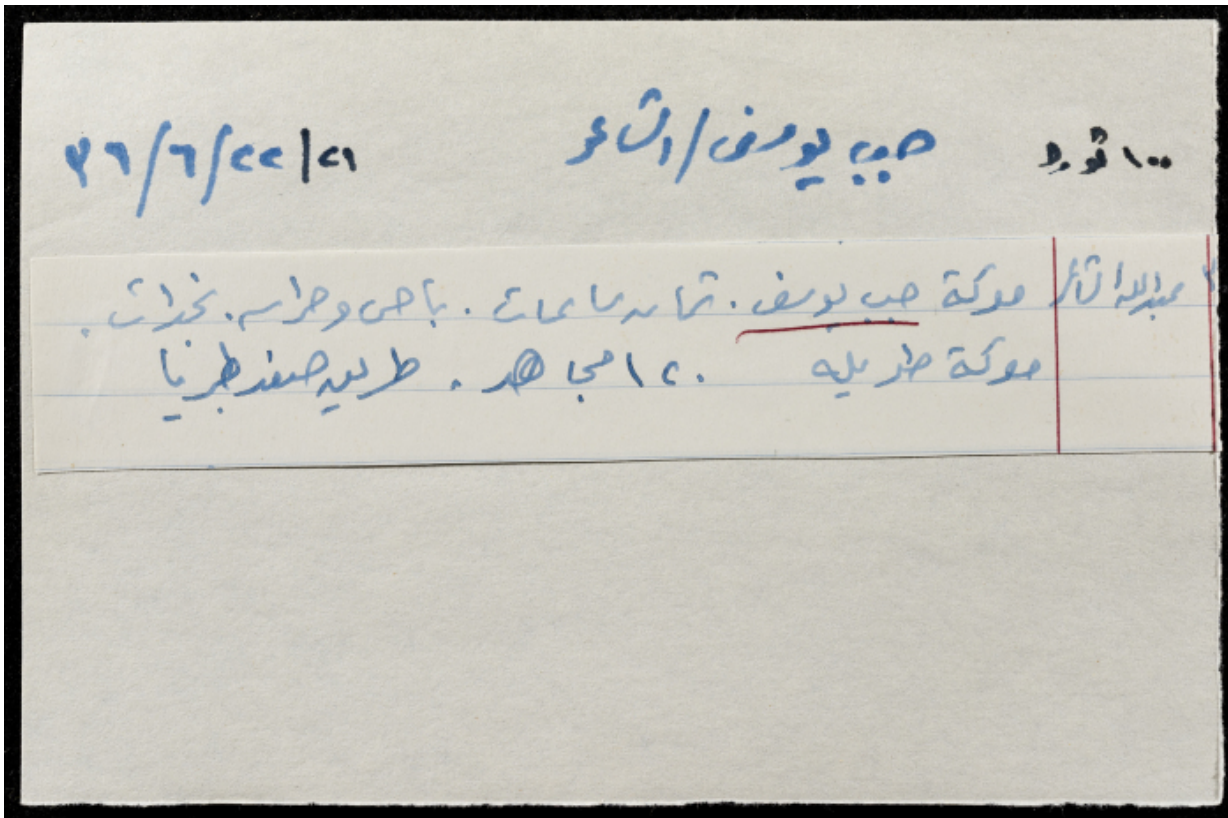 ١٠٠ ثورة جب يوسف/الشاعر ٢١/٢٢/٦/٣٦
عبدالله الشاعر معركة جب يوسف. ثمان ساعات. باص وحراسه. نجدات.
معركة طويله ١٢٠ مجاهد. طريق صفد طبريا